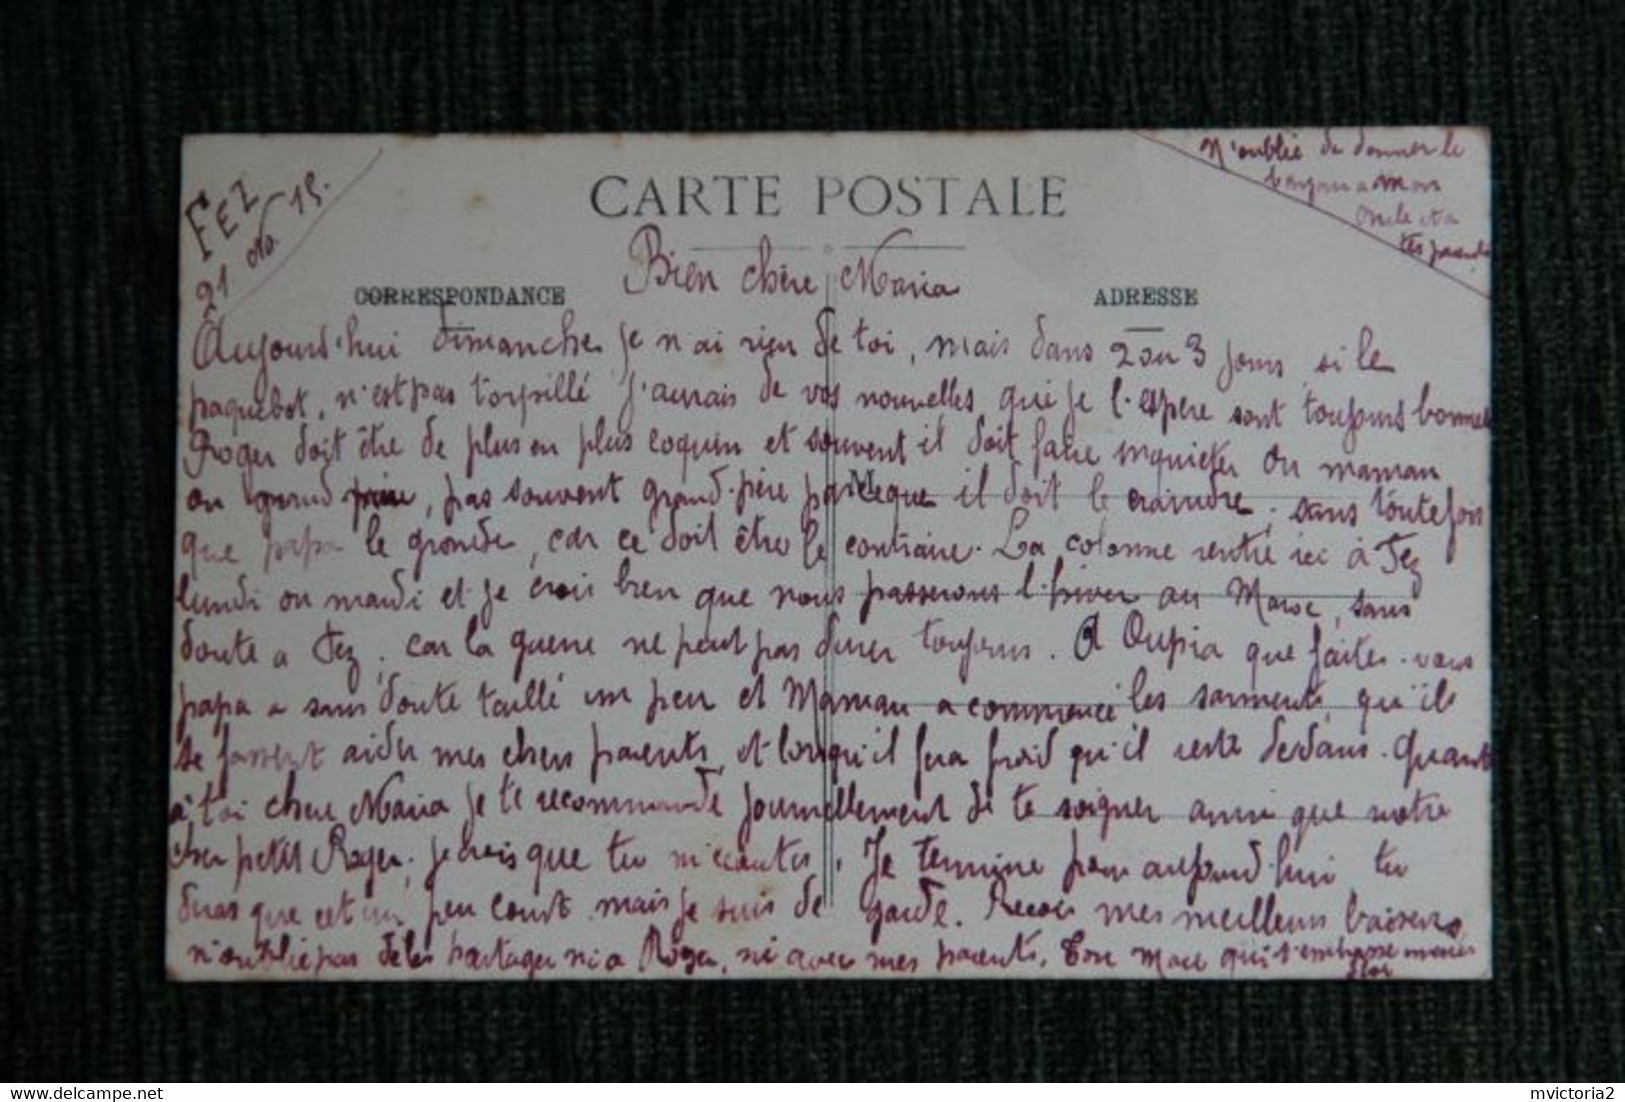 FEZ
21 Nov. 15.
N'oublie de donner le
bonjour a mon
oncle et a
tes parents
CARTE POSTALE
Bien chère Maria
CORRESPONDANCE
ADRESSE
Aujourd'hui dimanche je n'ai rien de toi, mais dans 2 ou 3 jours si le
paquebot, n'est pas torpillé j'aurais de vos nouvelles que je l'espère sont toujours bonnes
Roger doit être de plus en plus coquin et souvent il doit faire inquieter ou maman
ou grand père, pas souvent grand-père parceque il doit le craindre, sans toutefois
M
que papa le gronde, car ce doit être le contraire. La colonne rentre ici à Fez
lundi ou mardi et je crois bien que nous passerons l'hiver au Maroc, sans
doute a Fez, car la guerre ne peut pas durer toujours. A Oupia que faites-vous
papa a sans doute taillé un peu et Maman a commencé les sarments, qu'ils
se fassent aider mes chers parents, et lorsqu'il fera froid qu'il reste dedans. Quant
à toi chere Maria je te recommande journellement de te soigner ainsi que notre
cher petit Roger, je crois que tu m'ecoutes. Je termine pour aujourd'hui tu
diras que c'est un peu court mais je suis de garde. Recois mes meilleurs baisers,
n'oublie pas de les partager ni a Roger, ni avec mes parents. Ton qui t'embrasse
mvictoria2